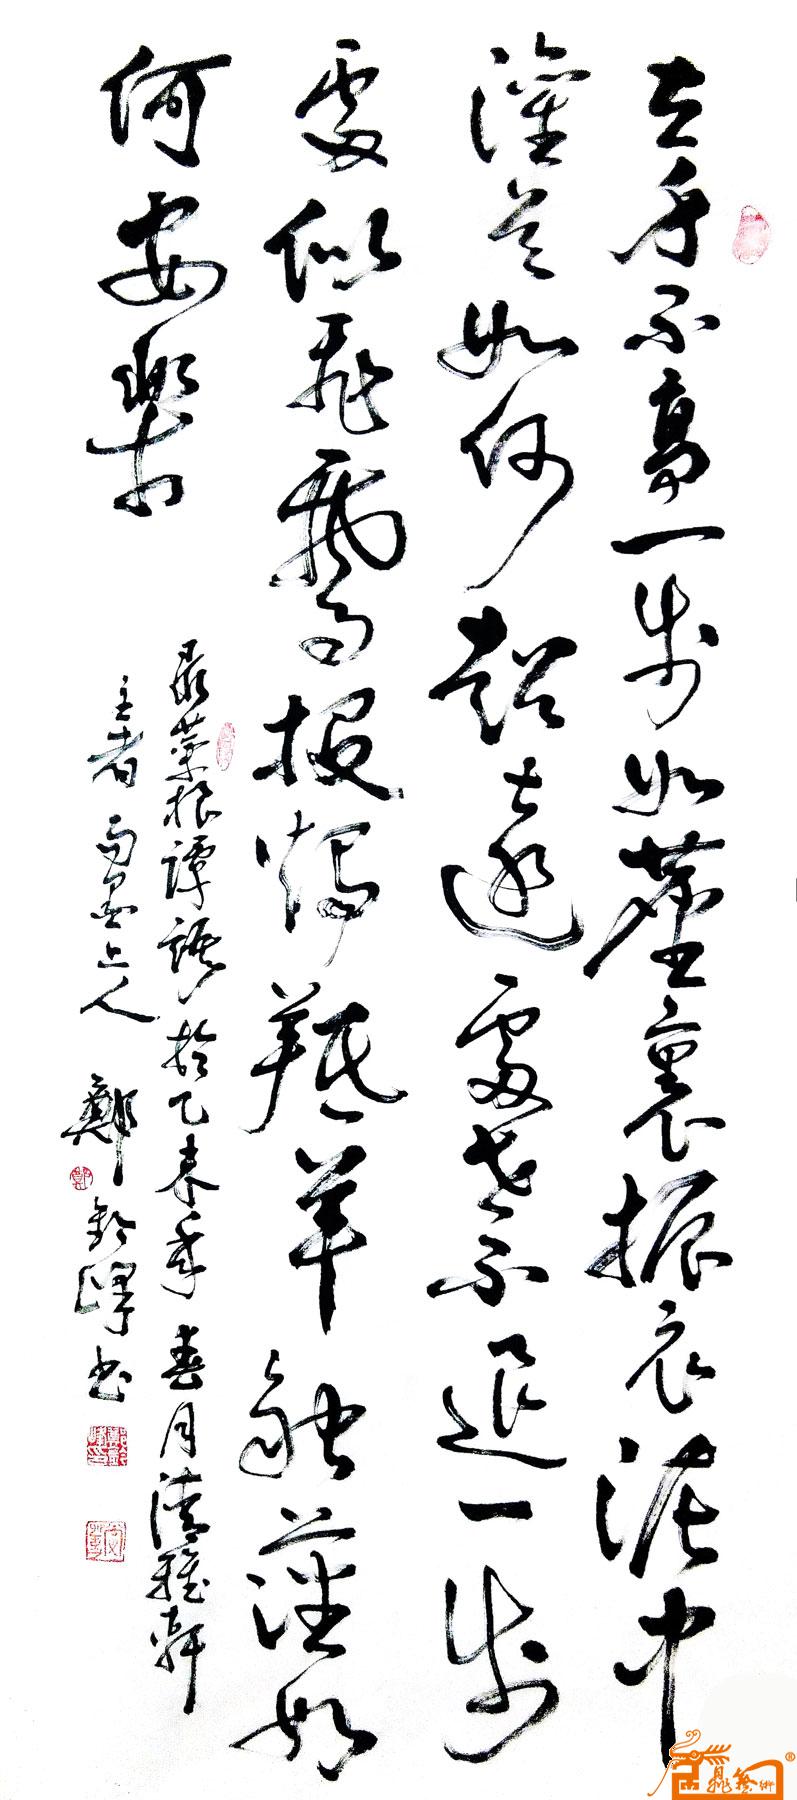 立身不高一步如塵裏振衣泥中
濯足如何超達處世不退一步
處似飛蛾投燭羝羊觸藩如
何安樂
录菜根譚語於乙未年春月清雅軒
主者雨墨上人鄭鈴峰书